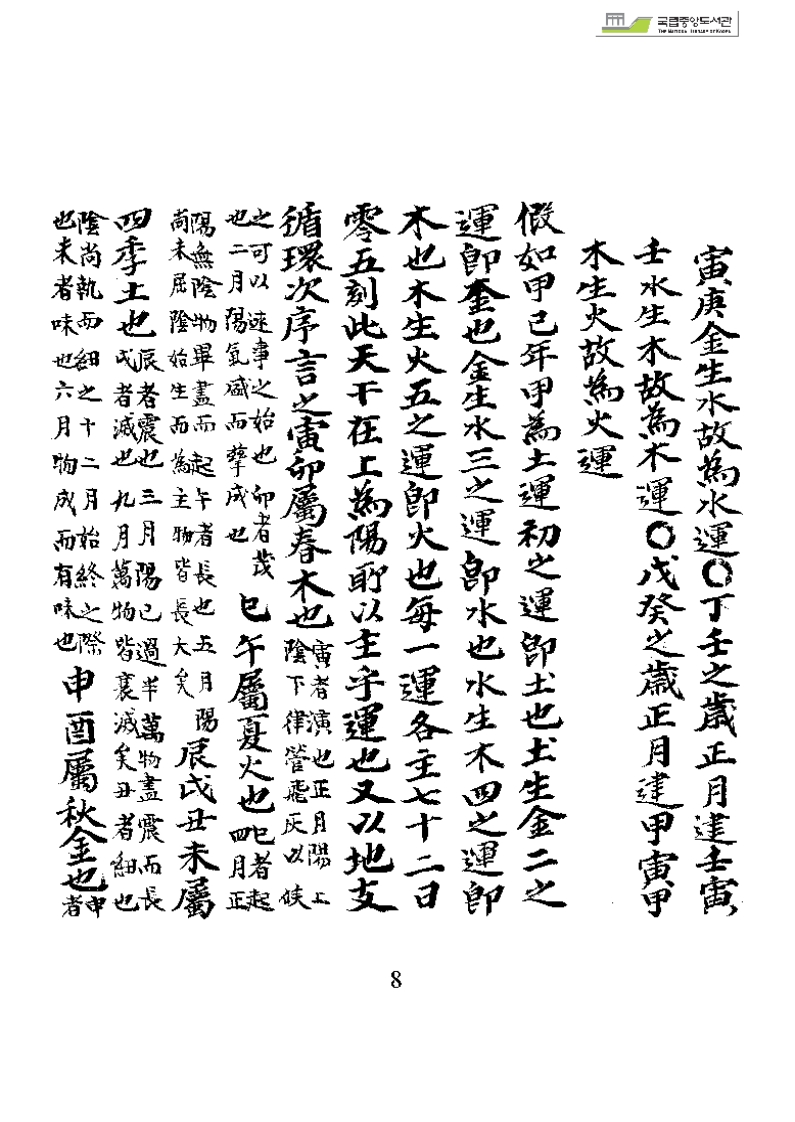 국립중앙도서관
THE NATIONAL LIBRARY OF KOREA
寅庚金生水故為水運〇丁壬之歲正月建壬寅
壬水生木故為木運〇戊癸之歲正月建甲寅甲
木生火故為火運
假如甲己年甲為土運初之運即土也土生金二之
運即金也金生水三之運即水也水生木四之運即
木也木生火五之運即火也每一運各主七十二日
零五刻此天干在上為陽所以主乎運也又以地支
循環次序言之寅卯屬春木也寅者演也正月陽上陰下律管飛灰以候
之可以述事之始也卯者茂也二月陽氣盛而孳成也巳午屬夏火也巳者起四月正
陽無陰物畢盡而起午者長也五月陽尚未屈陰始生而為主物皆長大矣辰戌丑未屬
四季土也辰者震也三月陽已過半萬物盡震而長戌者滅也九月萬物皆衰滅矣丑者細也
陰尚執而細之十二月始終之際也未者味也六月物成而有味也申酉屬秋金也申者
8